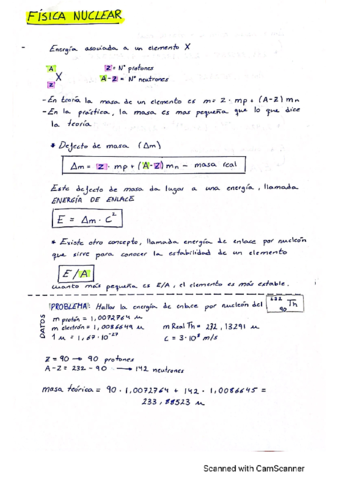 FÍSICA NUCLEAR
Energía asociada a un elemento X
A
X
Z
Z = Nº protones
A-Z = Nº neutrones
- En teoría la masa de un elemento es m = Z · mp + (A-Z) mn
- En la práctica, la masa es mas pequeña que lo que dice
la teoría.
* Defecto de masa (Δm)
Δm = Z · mp + (A-Z) mn - masa real
Este defecto de masa da lugar a una energía, llamada
ENERGÍA DE ENLACE
E = Δm · C²
* Existe otro concepto, llamada energía de enlace por nucleón
que sirve para conocer la estabilidad de un elemento
E/A
cuanto más pequeña es E/A, el elemento es más estable.
PROBLEMA: Hallar la energía de enlace por nucleón del ²³²₉₀Th
DATOS
m protón = 1,0072764 u
m electrón = 1,0086649 u
1 u = 1,67·10⁻²⁷
m Real Th = 232,13291 u
c = 3·10⁸ m/s
Z = 90 → 90 protones
A-Z = 232 - 90 → 142 neutrones
masa teórica = 90 · 1,0072764 + 142 · 1,0086645 =
233,88523 u
Scanned with CamScanner